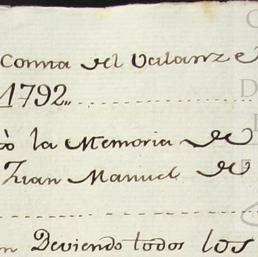 Conta del Valanze
1792,,
ò la Memoria de
Juan Manuel de
n Deviendo todos los